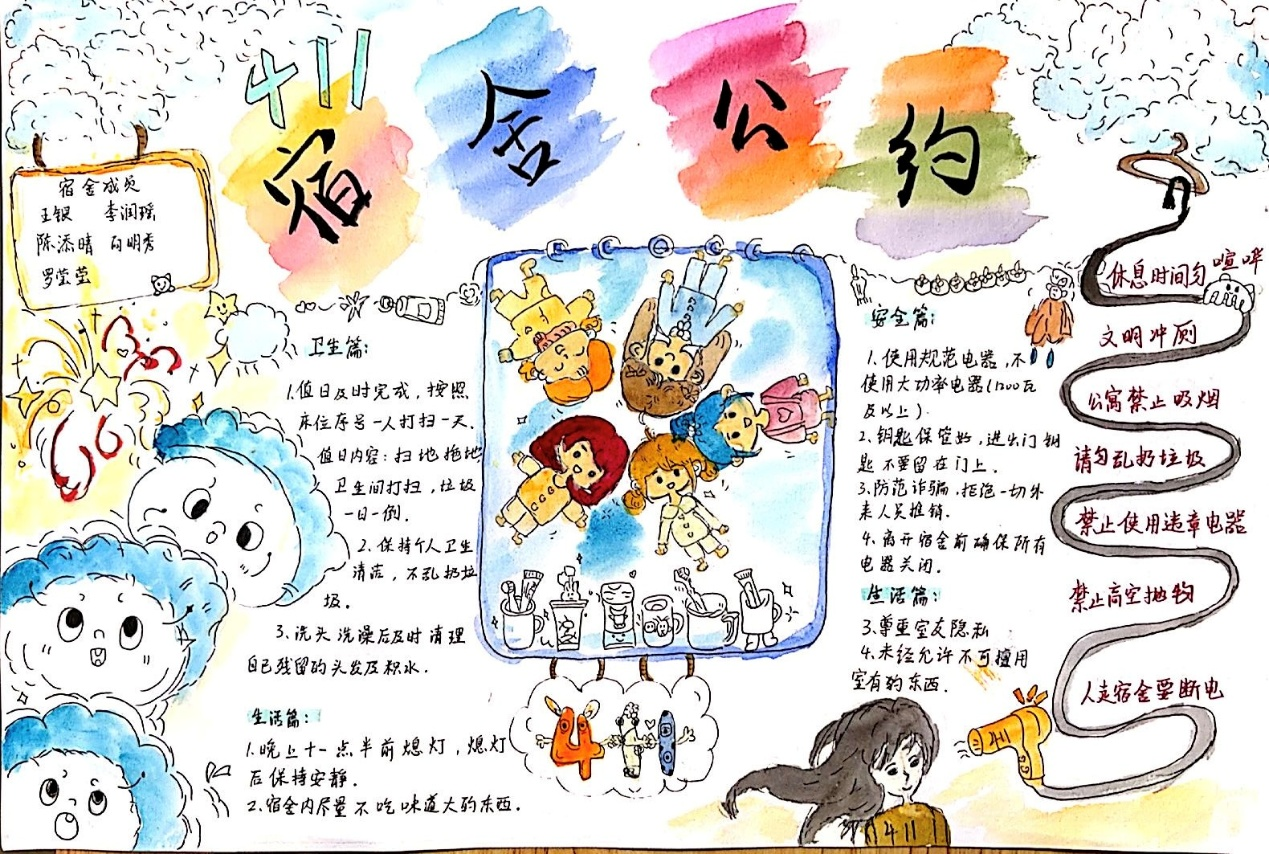 411
宿舍公约
宿舍成员
王银 李润瑶
陈添晴 向明秀
罗莹莹
66
卫生篇：
1.值日及时完成，按照
床位序号一人打扫一天.
值日内容：扫地拖地
卫生间打扫，垃圾
一日一倒.
2.保持个人卫生
清洁，不乱扔垃
圾.
3.洗头洗澡后及时清理
自己残留的头发及积水.
生活篇：
1.晚上十一点半前熄灯，熄灯
后保持安静.
2.宿舍内尽量不吃味道大的东西.
411
安全篇：
1.使用规范电器，不
使用大功率电器(1200瓦
及以上).
2.钥匙保管好，进出门钥
匙不要留在门上.
3.防范诈骗，拒绝一切外
来人员推销.
4.离开宿舍前确保所有
电器关闭.
生活篇：
3.尊重室友隐私
4.未经允许不可擅用
室友的东西.
休息时间勿喧哗
文明冲厕
公寓禁止吸烟
请勿乱扔垃圾
禁止使用违章电器
禁止高空抛物
人走宿舍要断电
411
411